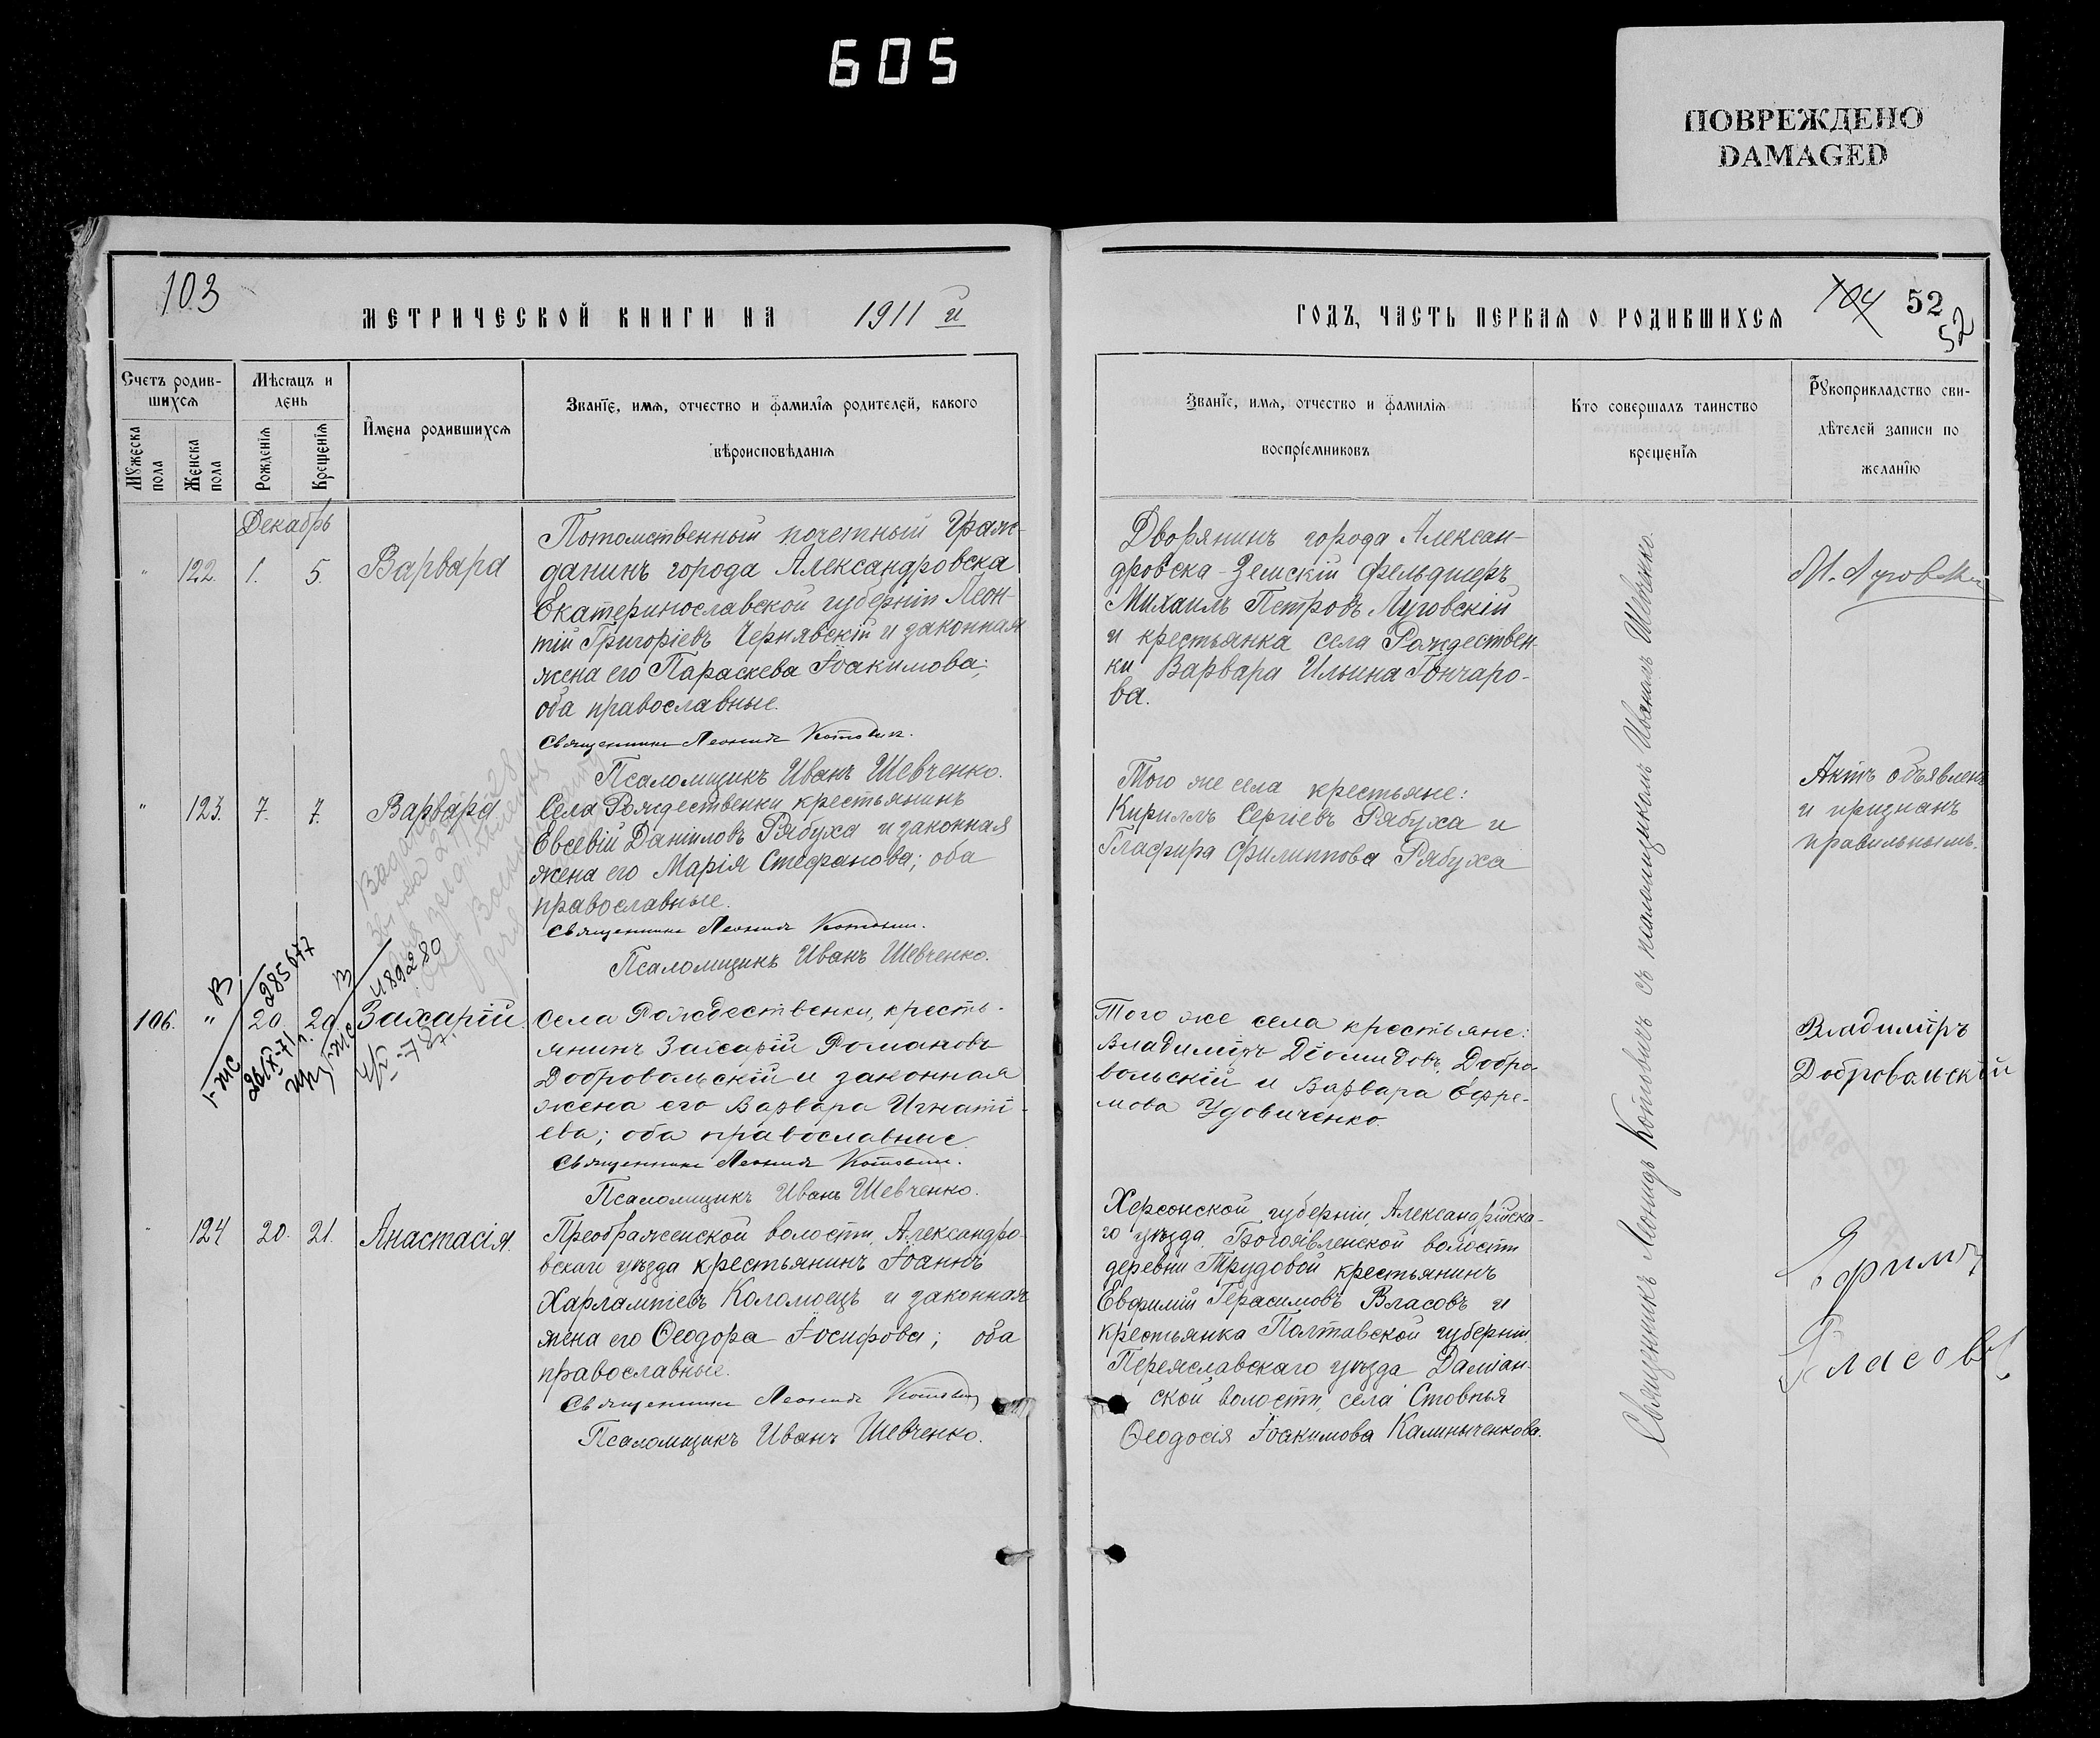 605
ПОВРЕЖДЕНО
DAMAGED
103
МЕТРИЧЕСКОЙ КНИГИ НА 1911 й
Счетъ родив-
шихся
Мѣсяцъ и
день
Мужеска
пола
Женска
пола
Рожденія
Крещенія
Имена родившихся
Званіе, имя, отчество и фамилія родителей, какого
вѣроисповѣданія
Декабрь
" 122. 1. 5. Варвара
Потомственный почетный Граж-
данинъ города Александровска
Екатеринославской губерніи Леон-
тій Григоріевъ Чернявскій и законная
жена его Параскева Іоакимова;
оба православные.
Священникъ Леонидъ Котовичъ.
Псаломщикъ Иванъ Шевченко.
" 123. 7. 7. Варвара
Села Рождественки крестьянинъ
Евсевій Даніиловъ Рябуха и законная
жена его Марія Стефанова; оба
православные.
Священникъ Леонидъ Котовичъ.
Псаломщикъ Иванъ Шевченко.
106. " 20. 20. Захарій.
Села Рождественки, кресть-
янинъ Захарій Романовъ
Добровольскій и законная
жена его Варвара Игнаті-
ева; оба православные
Священникъ Леонидъ Котовичъ.
Псаломщикъ Иванъ Шевченко.
" 124 20. 21. Анастасія.
Преображенской волости, Александро-
вскаго уѣзда крестьянинъ Іоаннъ
Харлампіевъ Коломоецъ и законная
жена его Ѳеодора Іосифова; оба
православные.
Священникъ Леонидъ Котовичъ
Псаломщикъ Иванъ Шевченко.
ГОДЪ, ЧАСТЬ ПЕРВАЯ О РОДИВШИХСЯ
104 52
52
Званіе, имя, отчество и фамилія
воспріемниковъ
Кто совершалъ таинство
крещенія
Рукоприкладство сви-
дѣтелей записи по
желанію
Дворянинъ города Алексан-
дровска-Земскій Фельдшеръ
Михаилъ Петровъ Луговскій
и крестьянка села Рождествен-
ки Варвара Ильина Гончаро-
ва.
Того же села крестьяне:
Кириллъ Сергіевъ Рябуха и
Глафира Филиппова Рябуха
Того же села крестьяне:
Владиміръ Діомидовъ Добро-
вольскій и Варвара Ефре-
мова Удовиченко.
Херсонской губерніи, Александрійска-
го уѣзда Богоявленской волости
деревни Трудовой крестьянинъ
Евфимій Герасимовъ Власовъ и
крестьянка Полтавской губерніи
Переяславскаго уѣзда Даміан-
ской волости, села Стовпья
Ѳеодосія Іоакимова Калиныченкова.
Священникъ Леонидъ Котовичъ съ псаломщикомъ Иваномъ Шевченко.
Актъ объявленъ
и признанъ
правильнымъ.
Владиміръ
Добровольскій